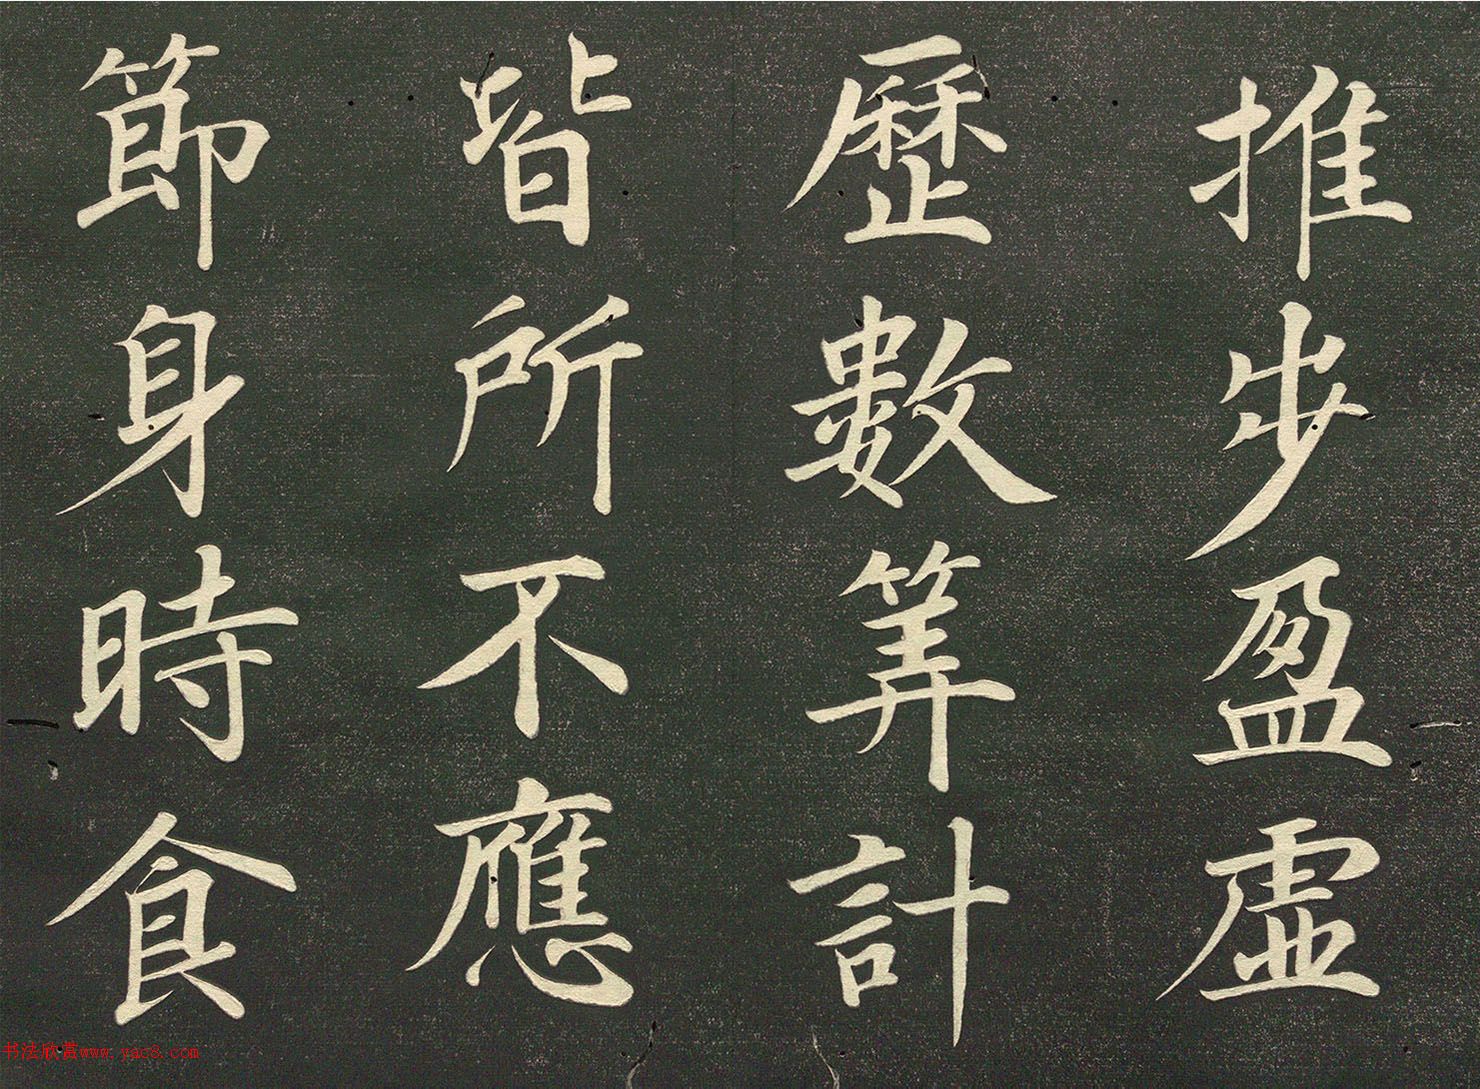 推步盈虛
歷數筭計
皆所不應
節身時食
书法欣赏www.yac8.com